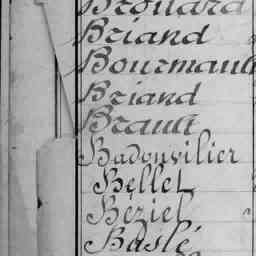 Brouard
Briand
Bourmault
Briand
Brault
Badouvilier
Bellet
Beziel
Baslé